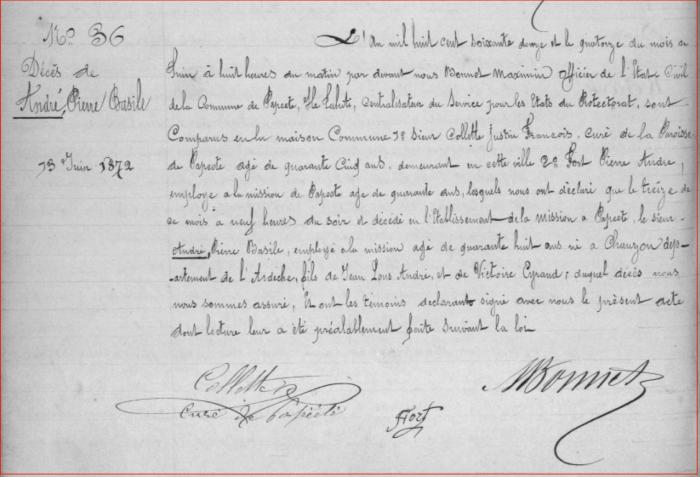 No 36
Décès de
André, Pierre Basile
13 Juin 1872
L'An mil huit cent soixante douze et le quatorze du mois de
Juin à huit heures du matin par devant nous Bonnet Maximin Officier de l'Etat Civil
de la Commune de Papeete, Ile Tahiti, Centralisateur du Service pour les Etats du Protectorat, sont
Comparus en la maison Commune 1º Sieur Collette Justin François, Curé de la Paroisse
de Papeete agé de quarante Cinq ans, demeurant en cette ville 2º Fort Pierre Andre,
employé a la mission de Papeete age de quarante ans, lesquels nous ont déclaré que le treize de
ce mois à neuf heures du soir est décédé en l'Etablissement de la mission a Papeete, le sieur
André, Pierre Basile, employé a la mission agé de quarante huit ans né a Chauzon dep-
-artement de l'Ardèche, fils de Jean Louis André, et de Victoire Eyraud; duquel décès nous
nous sommes assuré, Et ont les témoins déclarant signé avec nous le présent acte
dont lecture leur a été préalablement faite suivant la loi
Collette
Curé de Papeete
Fort
MBonnet